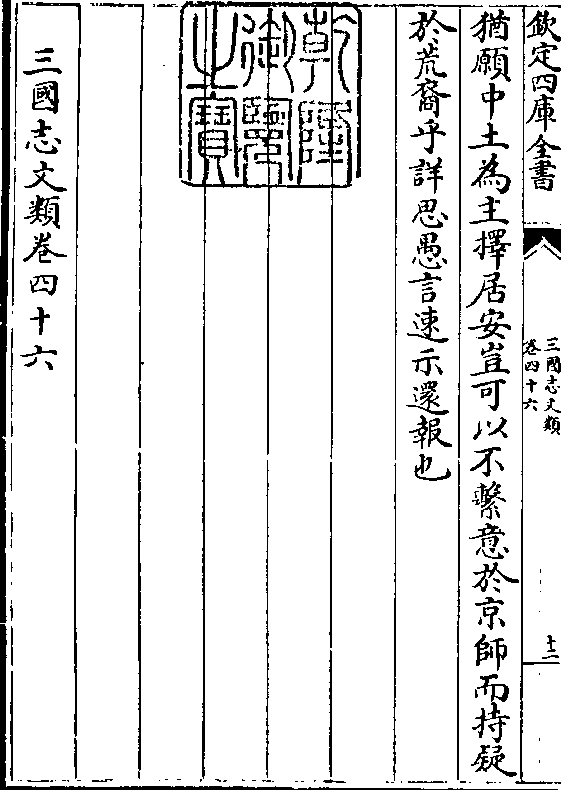 欽定四庫全書
三國志文類
卷四十六
十二
猶願中土為主擇居安豈可以不繫意於京師而持疑
於荒裔乎詳思愚言速示還報也
乾隆
御覽
之寶
三國志文類卷四十六